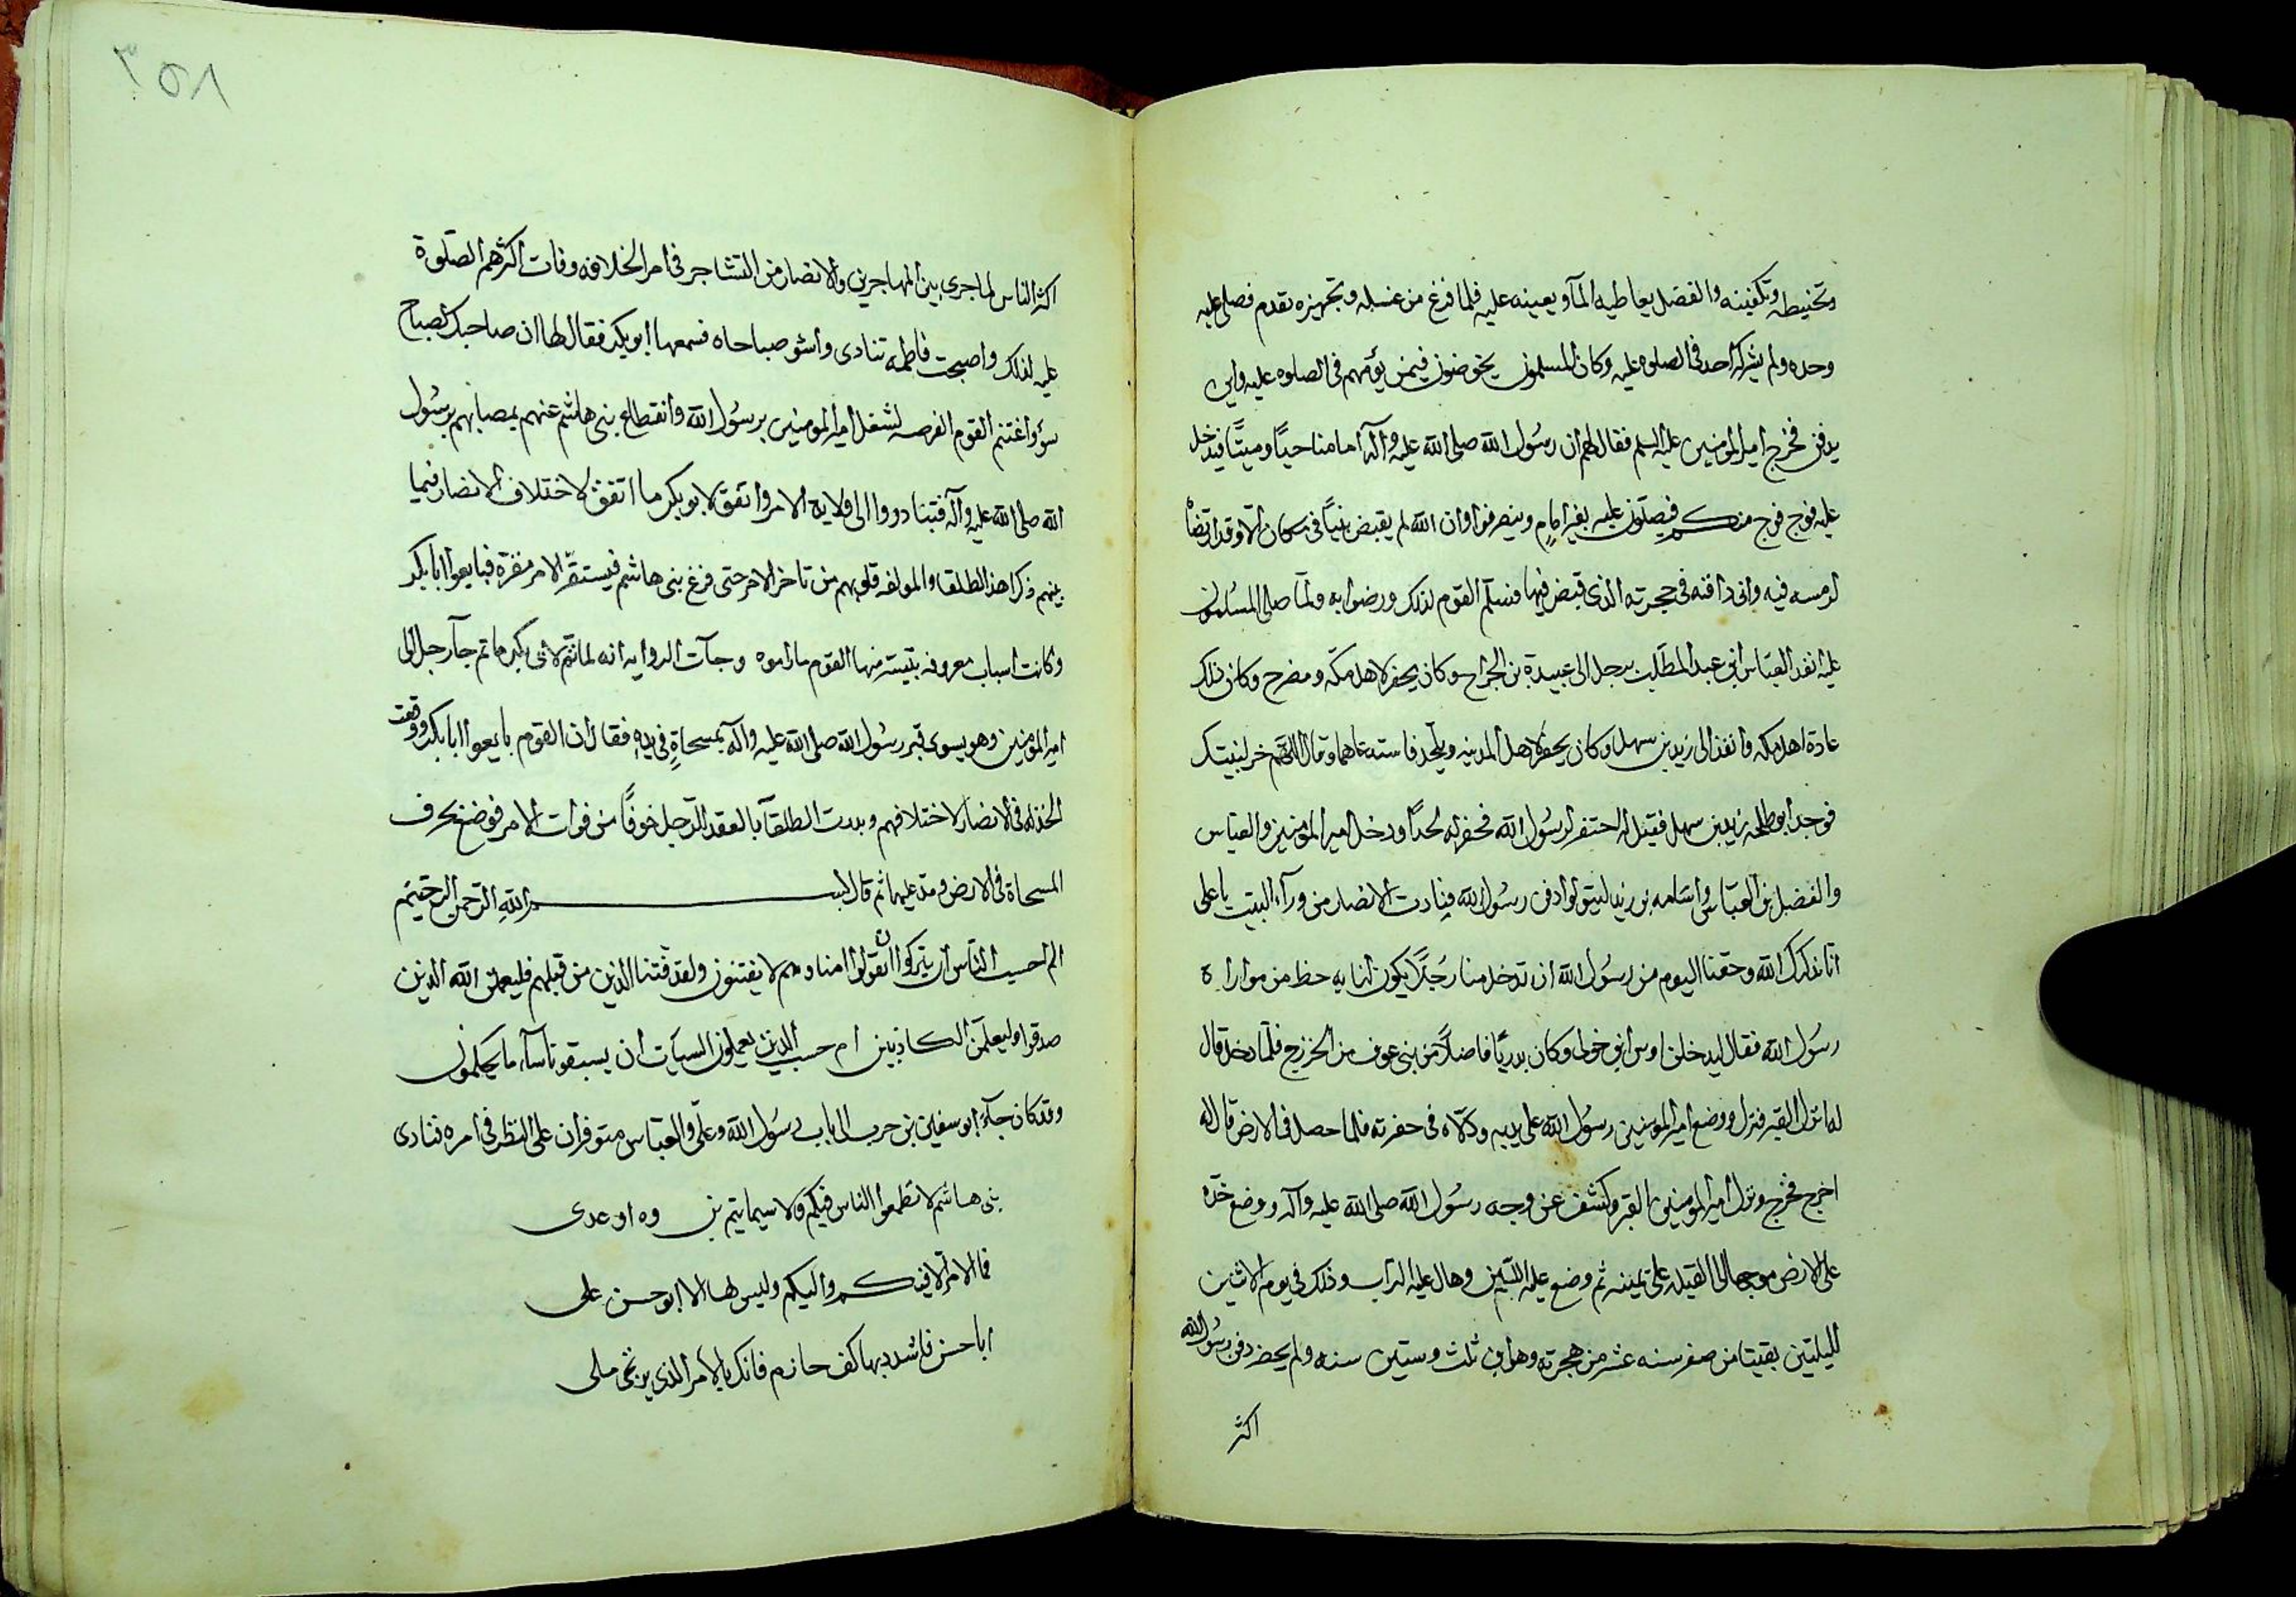 وتحنيطه وتكفينه والفضل يعاطيه المآء ويعينه عليه فلما فرغ من غسله وتجهيزه تقدم فصلى عليه
وحده ولم يشركه احد فى الصلوة عليه وكان المسلمون يخوضون فيمن يؤمهم فى الصلوه عليه واين
يدفن فخرج امير المومنين عليه السلم فقال لهم ان رسُول الله صلى الله عليه وآله امامنا حيًا وميتًا فيدخل
عليه فوج فوج منكم فيصلون عليه بغير امامٍ وينصرفوا وان الله لم يقبض نبيًا فى مكان الا وقد ارتضاه
لرمسه فيه وانى دافنه فى حجرته الذى قبض فيها فسلم القوم لذلك ورضوا به ولمّا صلى المسلمون
عليه انفذ العبّاس ابن عبد المطّلب برجل الى عبيدة بن الجراح وكان يحفر لاهل مكّه ومضرح وكان ذلك
عادة اهل مكه وانفذ الى زيد بن سهل وكان يحفر لاهل المدينه ويلحد فاستدعاهما وقال اللّهم خر لنبيك
فوجد ابو طلحه زيد بن سهل فقيل له احتفر لرسُول الله فحفر له لحدًا ودخل امير المؤمنين والعباس
والفضل بن العبّاس واسَامه بن زيد ليتولوا دفن رسُول الله فنادت الانصار من ورآء البيت يا على
انا نذكرك الله وحقنا اليوم من رسُول الله ان تدخل منا رجُلًا يكون لنا به حظ من مواراة
رسُول الله فقال ليدخلن اوس ابن خولى وكان بدريًا فاضلًا من بنى عوف من الخزرج فلمّا دخل قال
له انزل القبر فنزل ووضع امير المومنين رسُول الله على يديه ودلّاه فى حفرته فلما حصل فى الارض قال له
اخرج فخرج ونزل امير المومنين القبر وكشف عن وجه رسُول الله صلى الله عليه وآله ووضع خدّه
على الارض موجهًا الى القبله على يمينه ثم وضع عليه اللّبن وهال عليه التراب وذلك فى يوم الاثنين
لليلتين بقيتا من صفر سنه عشر من هجرته وهو ابن ثلث وستين سنه ولم يحضر دفن رسُول الله
اكثر
٣٥٨
اكثر الناس لما جرى بين المهاجرين والانصار من التشاجر فى امر الخلافه وفات اكثرهم الصّلوة
عليه لذلك واصبحت فاطمه تنادى واسوء صباحاه فسمعها ابو بكر فقال لها ان صاحبك لصباح
سوء واغتنم القوم الفرصه لشغل امير المومنين برسُول الله وانقطاع بنى هاشم عنهم بمصابهم برسُول
الله صلى الله عليه وآله فتبادروا الى ولاية الامر واتفق لابو بكر ما اتفق لاختلاف الانصار فيما
بينهم وكراهة الطلقاء والمولفه قلوبهم من تاخر الامر حتى فرغ بنى هاشم فيستقرّ الامر مقرّه فبايعوا ابا بكر
وكانت اسباب معروفه بتيسّر منها القوم ما راموه وجآت الروايه انه لما تمّ لابى بكر ما تم جآء رجل الى
امير المؤمنين وهو يسوى قبر رسُول الله صلى الله عليه وآله بمسحاةٍ فى يده فقال ان القوم بايعوا ابا بكر ووقعت
الخذله فى الانصار لاختلافهم وبدرت الطلقآء بالعقد للرّجل خوفًا من فوات الامر فوضع طرف
المسحاة فى الارض ويده عليها ثم قال بسم الله الرّحمن الرحيم
الم احسب النّاس ان يتركوا ان يقولوا امنا وهم لا يفتنون ولقد فتنا الذين من قبلهم فليعلمن الله الذين
صدقوا وليعلمّن الكاذبين ام حسب الذين يعملون السيّات ان يسبقونا سآء ما يحكمون
وقد كان جآء ابو سفين بن حرب الى باب رسُول الله وعلىّ والعبّاس متوفران على النظر فى امره فنادى
بنى هاشم لا تطمعوا الناس فيكم ولا سيما تيم بن مره او عدى
فما الامر الا فيكم واليكم وليس لها الا ابو حسن على
ابا حسن فاشدد بها كف حازم فانك بالامر الذى يرتجى ملى